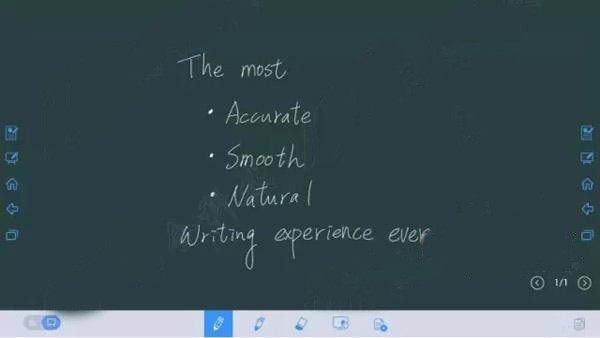 The most
• Accurate
• Smooth
• Natural
Writing experience ever
1/1